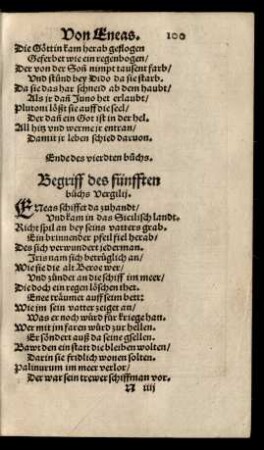 Von Eneas. 100
Die Göttin kam herab geflogen
Geferbet wie ein regenbogen/
Der von der Soñ nimpt tausent farb/
Vnd stünd bey Dido da sie starb.
Da sie das har schneid ab dem haubt/
Als jr dañ Juno het erlaubt/
Plutoni lößt sie auff die seel/
Der dañ ein Got ist in der hel.
All hitz vnd werme jr entran/
Damit jr leben schied daruon.
Ende des vierdten bůchs.
Begriff des fünfften
bůchs Vergilij.
ENeas schiffet da zuhandt/
Vnd kam in das Sicilisch landt.
Richt spil an bey seins vatters grab.
Ein brinnender pfeil fiel herab/
Des sich verwundert jederman.
Iris nam sich betrüglich an/
Wie sie die alt Beroe wer/
Vnd zünder an die schiff im meer/
Die doch ein regen löschen thet.
Enee träumet auff seim bett:
Wie jm sein vatter zeiget an/
Was er noch würd für kriege han.
Wer mit jm faren würd zur hellen.
Er söndert auß da seine gsellen.
Bawt den ein statt die bleiben wolten/
Darin sie fridlich wonen solten.
Palinurum im meer verlor/
Der war sein trewer schiffman vor.
N iiij